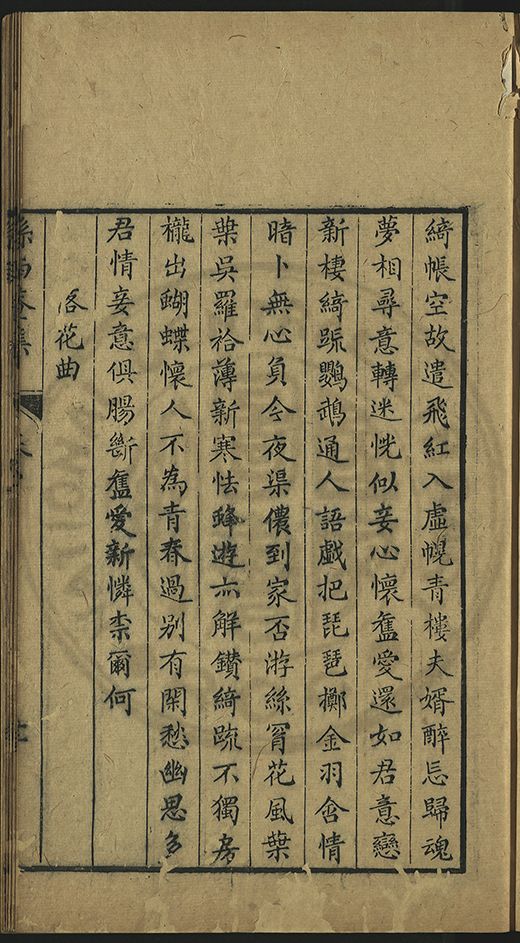 綺帳空故遣飛紅入虛幌青樓夫婿醉忘歸魂
夢相尋意轉迷恍似妾心懷舊愛還如君意戀
新棲綺疏鸚鵡通人語戲把琵琶擲金羽含情
暗卜無心負今夜渠儂到家否游絲罥花風葉
葉吳羅袷薄新寒怯蜂遊亦解鑚綺疏不獨房
櫳出蝴蝶懷人不為青春過別有閑愁幽思多
君情妾意俱腸斷舊愛新憐柰爾何
落花曲